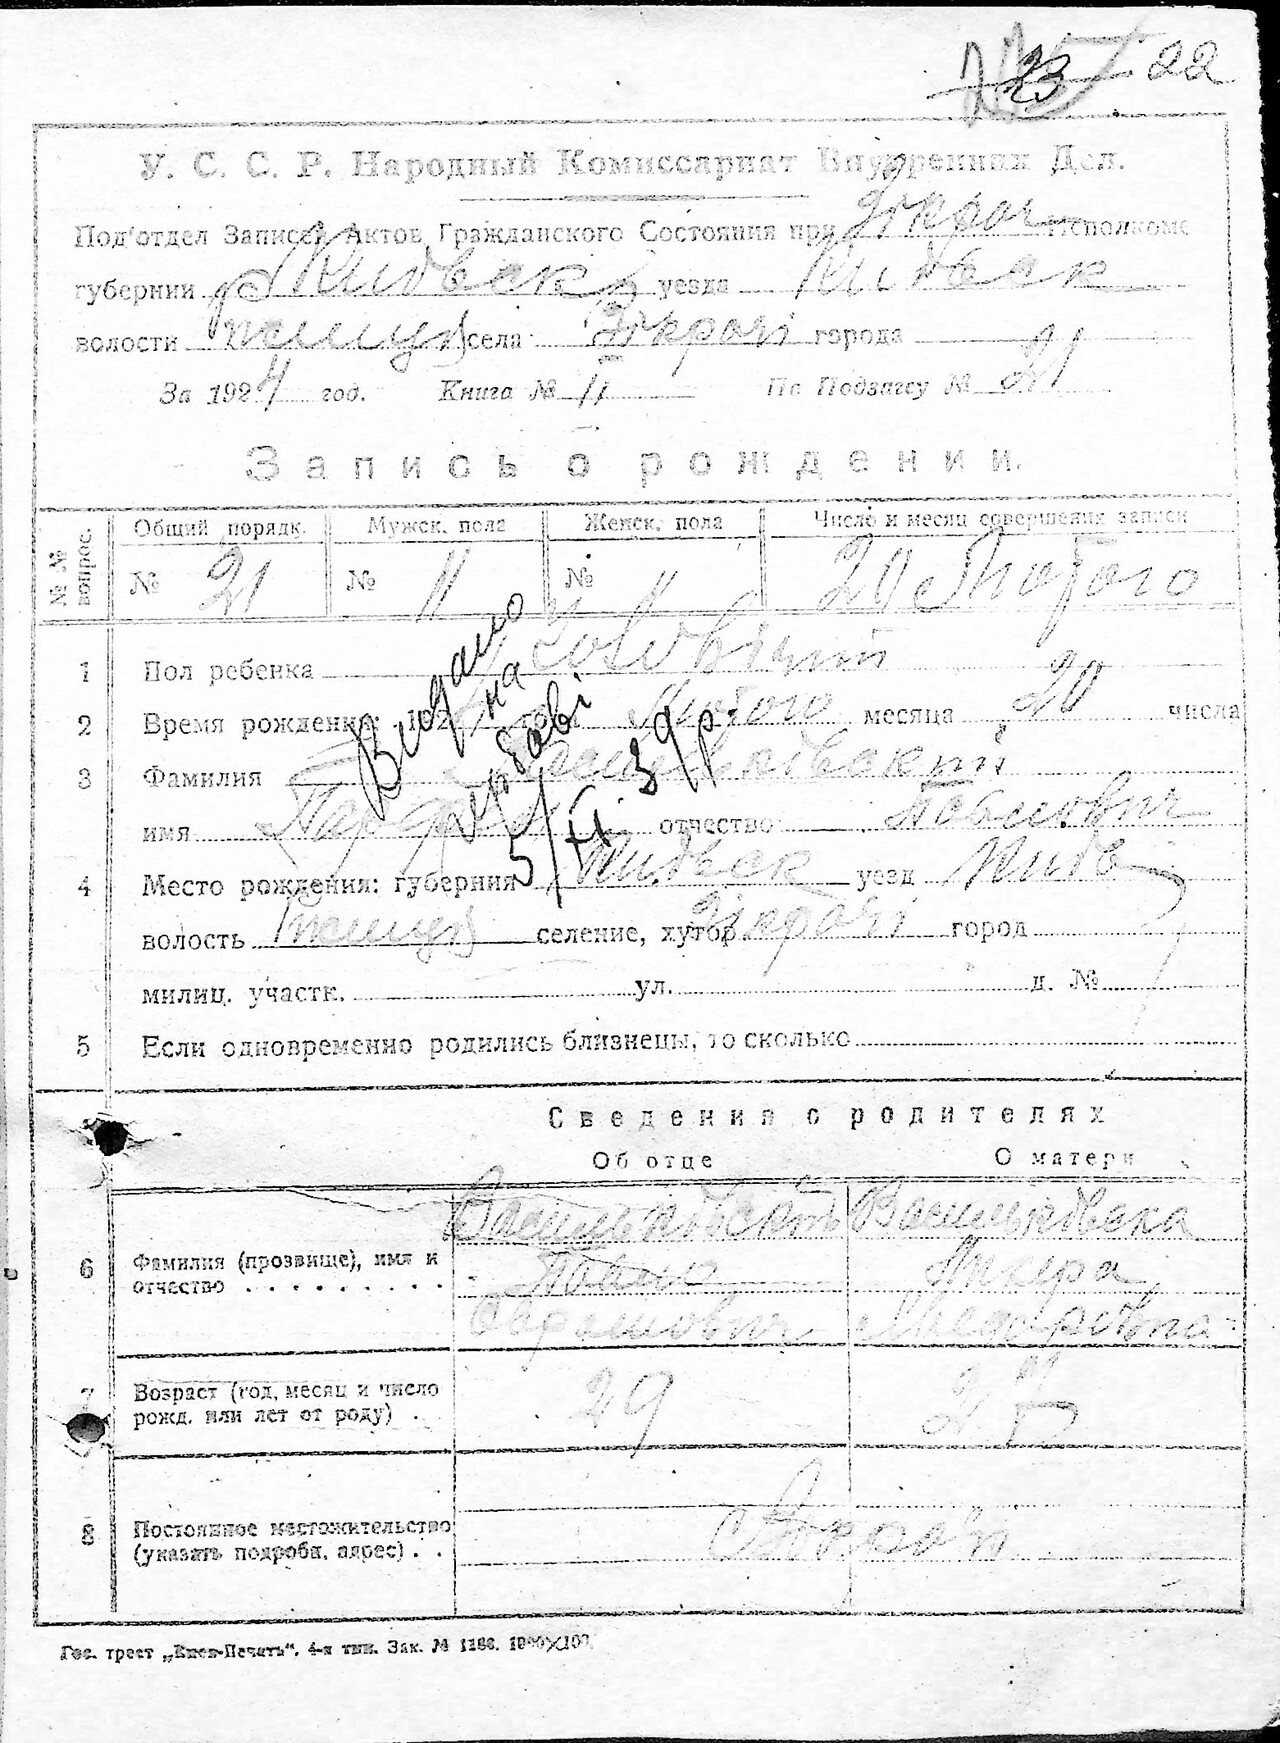 23 22
У. С. С. Р. Народный Комиссариат Внутренних Дел.
Под'отдел Записей Актов Гражданского Состояния при Зікрач Исполкоме
губернии Київськ уезда Київськ
волости села Зікрачі города
За 1924 год. Книга № II По Подзагсу № 21
Запись о рождении.
№ № вопрос. Общий порядк. Мужск. пола Женск. пола Число и месяц совершения записи
№ 21 № 11 № 11 20 Лютого
1 Пол ребенка Чоловічий
2 Время рождения: 192 Лютого месяца 20 числа
3 Фамилия Васильківський
имя отчество Павлович
4 Место рождения: губерния Київськ уезд Київ
волость селение, хутор Зікрачі город
милиц. участк. ул. д. №
5 Если одновременно родились близнецы, то сколько
Видано
на
5/II 39 р.
Сведения о родителях
Об отце О матери
Васильківський Васильківська
6 Фамилия (прозвище), имя и
отчество . . . . . . . . . Павло
7 Возраст (год, месяц и число
рожд. или лет от роду) . 29
8 Постоянное местожительство
(указать подробн. адрес) . .
Гос. трест „Киев-Печать". 4-я тип. Зак. № 1186.